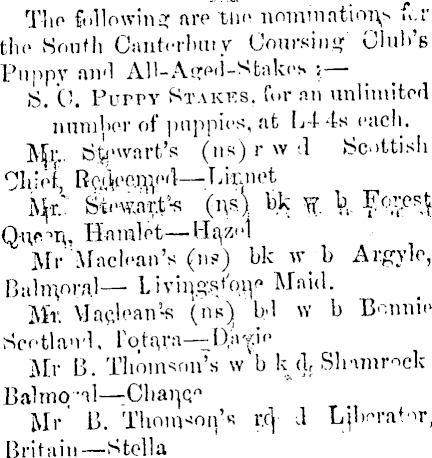 The following are the nominations for
the South Canterbury Coursing Club's
Puppy and All-Aged-Stakes :—
S. C. PUPPY STAKES, for an unlimited
number of puppies, at L4 4s each.
Mr. Stewart's (ns) r w d Scottish
Chief, Redeemed—Linnet
Mr. Stewart's (ns) bk w b Forest
Queen, Hamlet—Hazel
Mr Maclean's (ns) bk w b Argyle,
Balmoral—Livingstone Maid.
Mr. Maclean's (ns) bd w b Bonnie
Scotland, Totara—Dagie
Mr B. Thomson's w b k d, Shamrock
Balmoral—Chance
Mr B. Thomson's rd d Liberator,
Britain—Stella